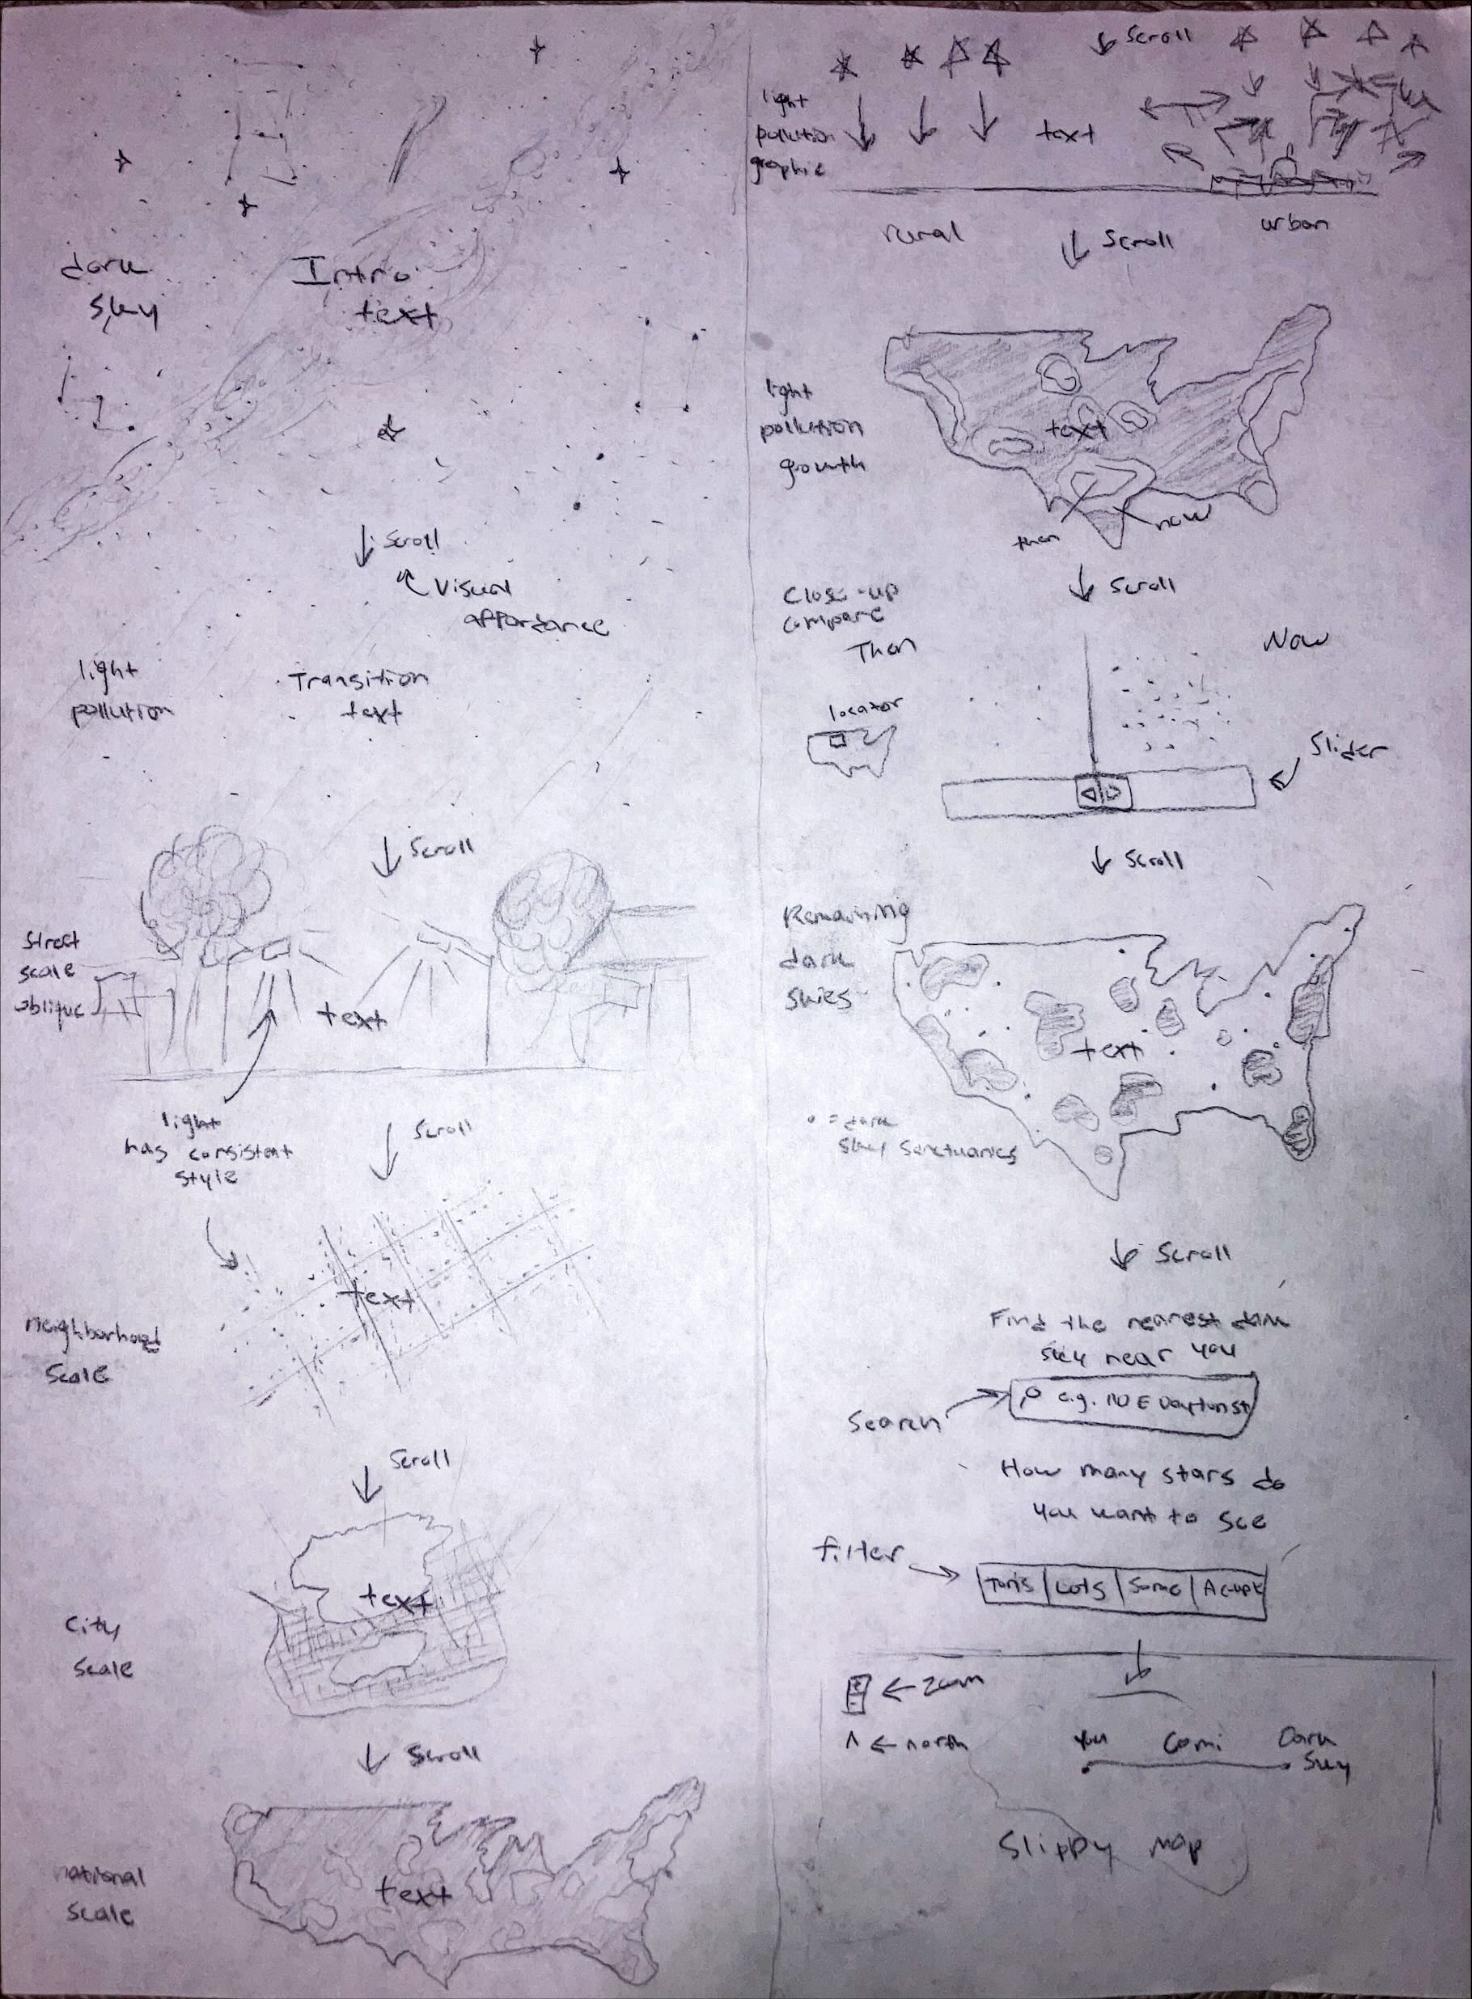 dark
sky
Intro
text
Scroll
visual
affordance
light
pollution
Transition
text
Scroll
street
scale
oblique
text
light
has consistent
style
Scroll
text
neighborhood
scale
Scroll
text
City
scale
Scroll
national
scale
text
Scroll
light
pollution
graphic
text
rural
urban
Scroll
light
pollution
growth
text
then
now
Scroll
Close-up
compare
Then
Now
locator
Slider
Scroll
Remaining
dark
skies
text
• = dark
sky sanctuaries
Scroll
Find the nearest dark
sky near you
Search
e.g. 110 E Dayton St
How many stars do
you want to see
filter
Tons Lots Some
+
-
zoom
north
you
Dark
Sky
Slippy map